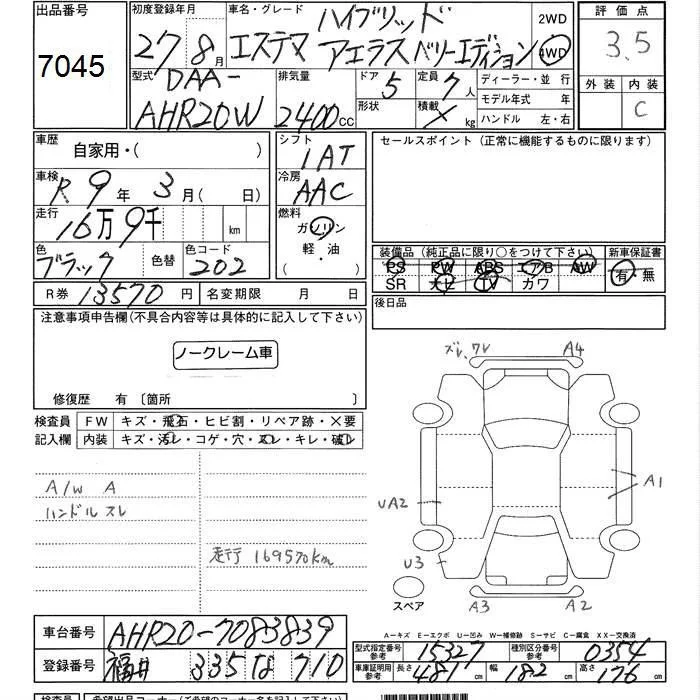 出品番号
7045
初度登録年月
27 8月
車名・グレード
ハイブリッド
エスティマ アエラス ベリーエディション
2WD
4WD
評価点
3.5
外装 内装
C
型式
DAA-
AHR20W
排気量
2400cc
ドア
5
形状
定員
7人
積載
× kg
ディーラー・並 行
モデル年式 年
ハンドル 左・右
車歴
自家用・( )
シフト
IAT
車検
R 9年 3月( 日)
冷房
AAC
走行
16万9千 km
燃料
ガソリン
軽・油
( )
色
ブラック
色替
色コード
202
R券 13570円
名変期限 月 日
セールスポイント (正常に機能するものに限ります)
装備品 (純正品に限り○をつけて下さい)
PS PW ABS エアB AW
SR ナビ TV カワ
新車保証書
有・無
後日品
注意事項申告欄(不具合内容等は具体的に記入して下さい)
ノークレーム車
修復歴 有 〔箇所 〕
検査員
記入欄
FW キズ・飛石・ヒビ割・リペア跡・×要
内装 キズ・汚レ・コゲ・穴・スレ・キレ・破レ
A/W A
ハンドル スレ
走行 169570km
ズレ、ワレ
A4
A1
UA2
U3
スペア
A3
A2
A-キズ E-エクボ U-凹み W-補修跡 S-サビ C-腐食 XX-交換済
車台番号
AHR20-7083839
登録番号
福井 335 な 710
型式指定番号
参考
15327
種別区分番号
参考
0354
車庫証明用
参考
長さ
481cm
幅
182cm
高さ
176cm
検査員
希望出品コーナー(ご希望のコーナー名を記入下さい)